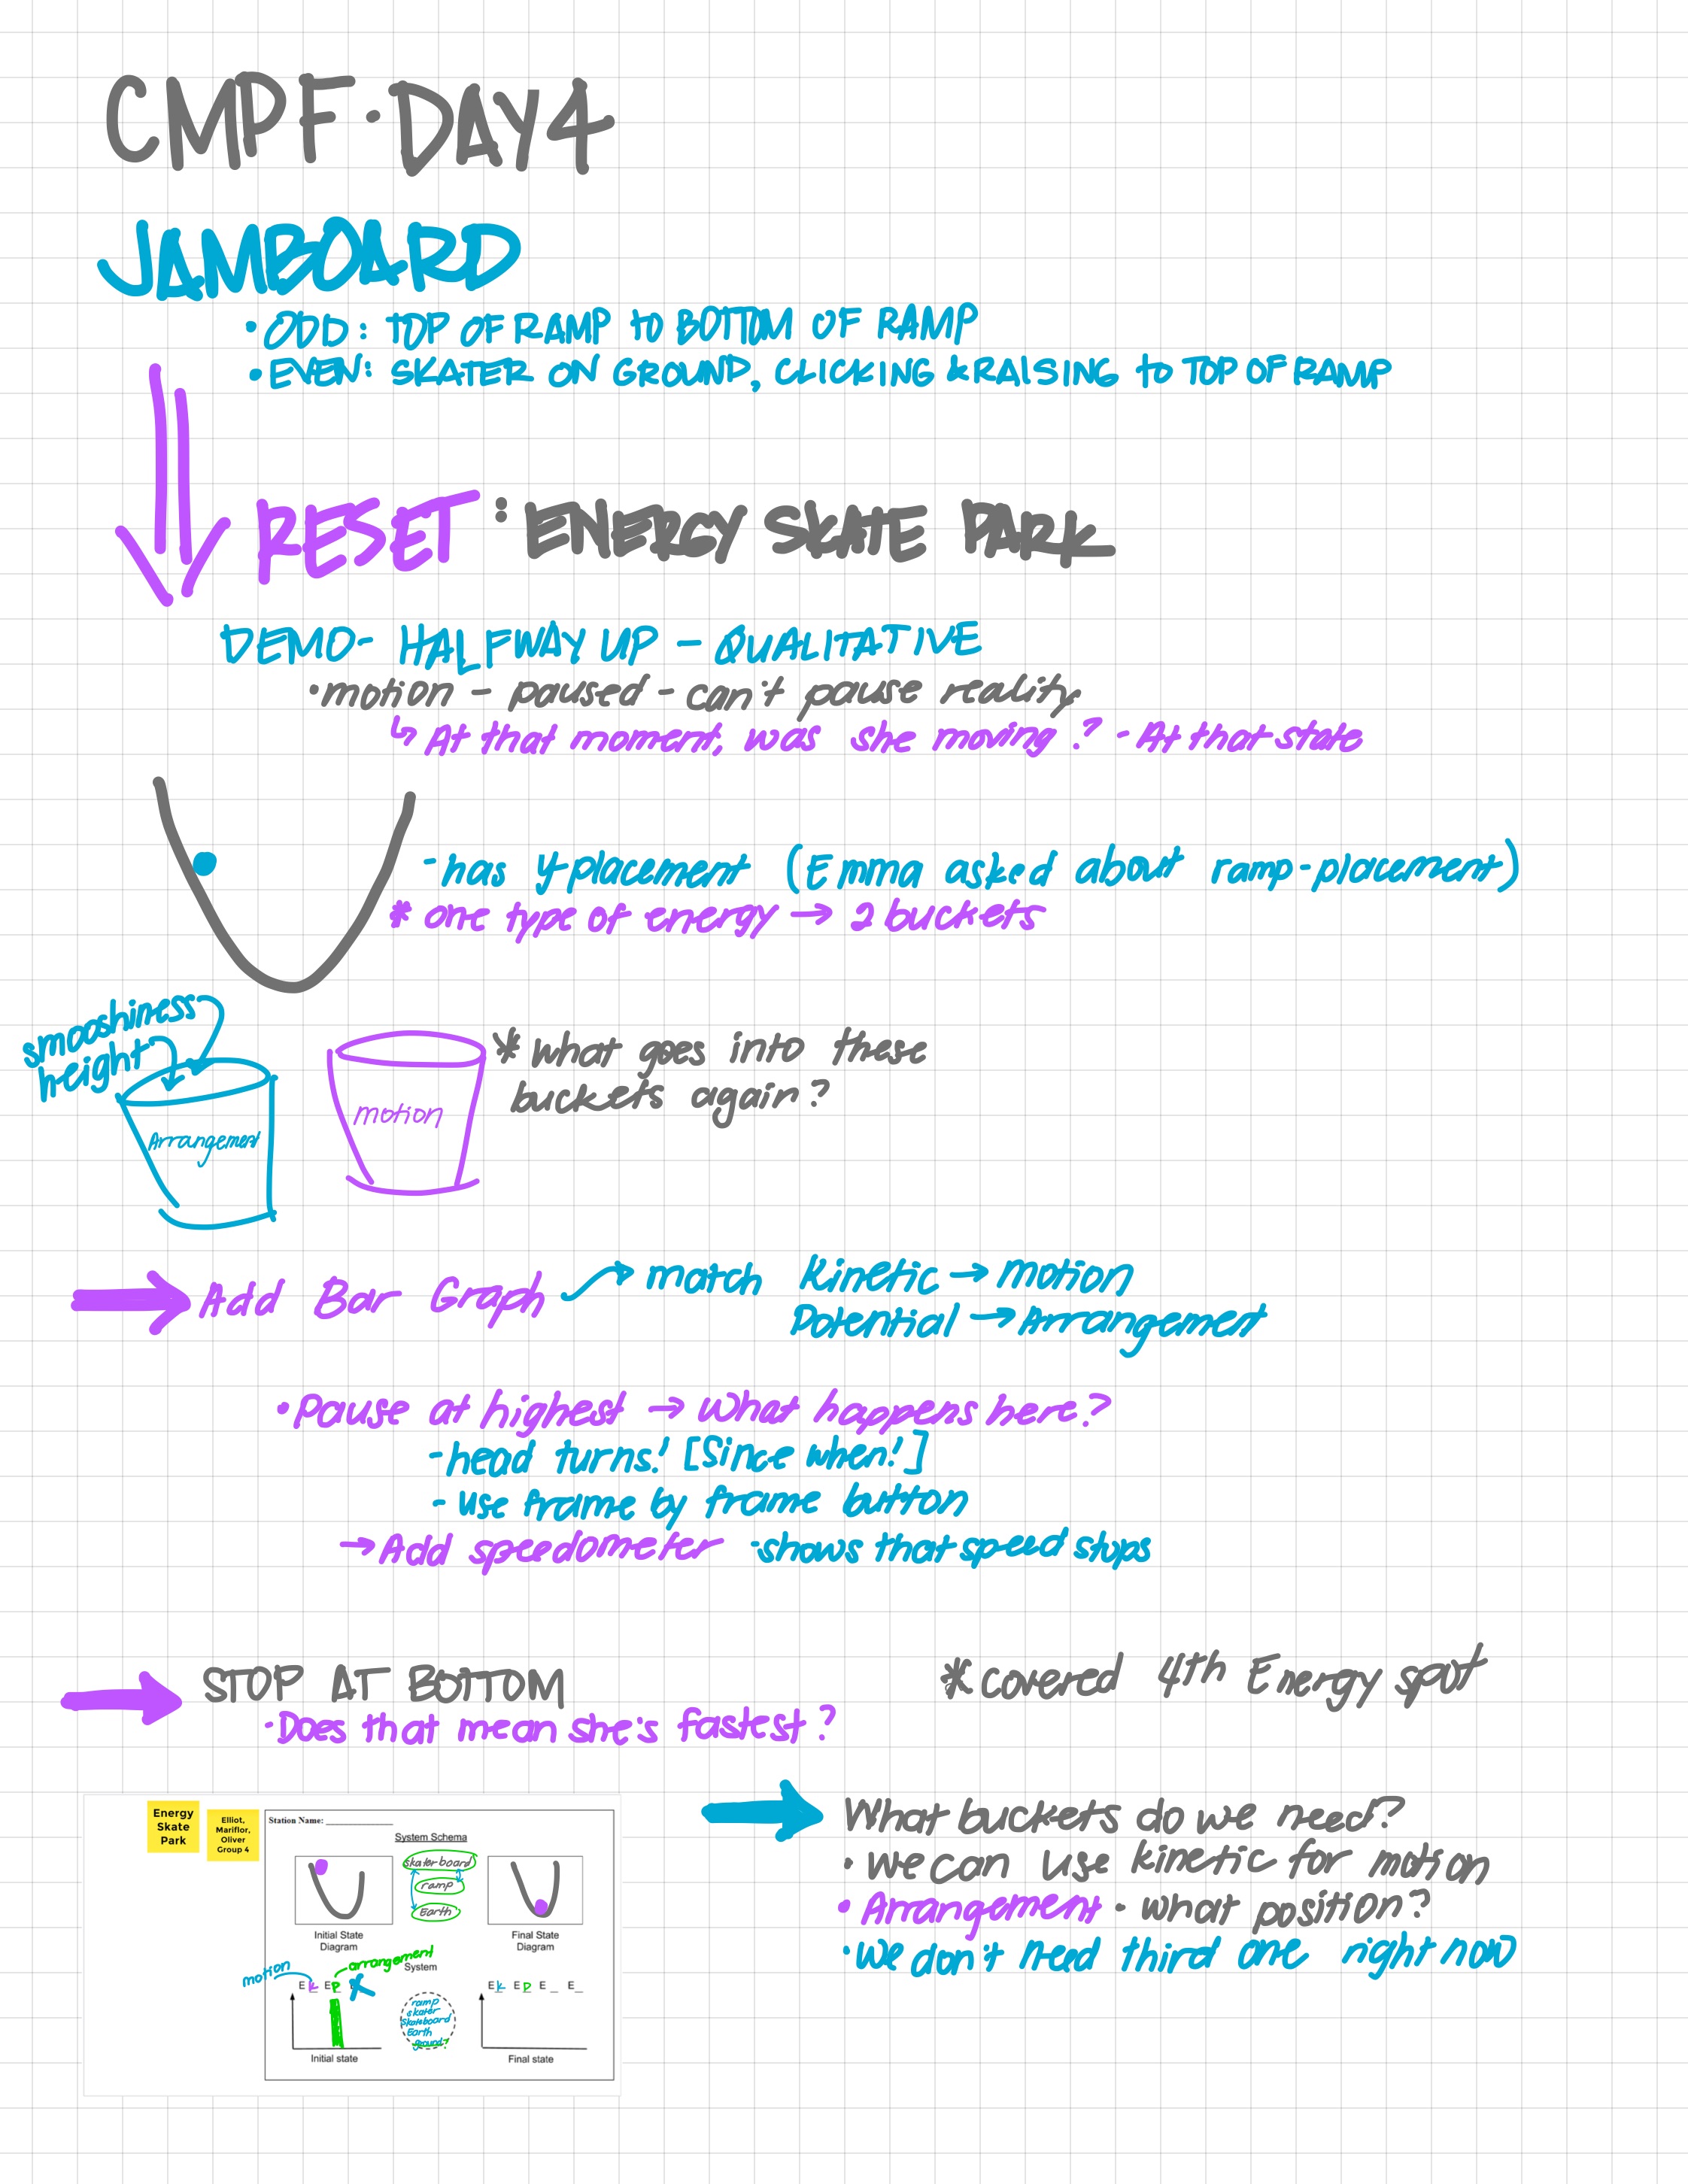 CMPF · DAY 4
JAMBOARD
• ODD: TOP OF RAMP to BOTTOM OF RAMP
• EVEN: SKATER ON GROUND, CLICKING & RAISING to TOP OF RAMP
RESET : ENERGY SKATE PARK
DEMO - HALFWAY UP - QUALITATIVE
• motion - paused - can't pause reality
↳ At that moment, was she moving? - At that state
- has y placement (Emma asked about ramp-placement)
* one type of energy → 2 buckets
smooshiness
height
Arrangement
motion
* What goes into these
buckets again?
Add Bar Graph → match Kinetic → Motion
Potential → Arrangement
• Pause at highest → What happens here?
- head turns! [Since when!]
- use frame by frame button
→ Add speedometer - shows that speed stops
STOP AT BOTTOM
- Does that mean she's fastest?
* covered 4th Energy spot
Energy
Skate
Park
Elliot,
Mariflor,
Oliver
Group 4
Station Name: _______________
System Schema
Skaterboard
ramp
Earth
Initial State
Diagram
Final State
Diagram
motion
arrangement
System
E k E p
E k E p E _ E _
ramp
skater
skateboard
Earth
ground
Initial state
Final state
What buckets do we need?
• We can use kinetic for motion
• Arrangement • what position?
• We don't need third one right now